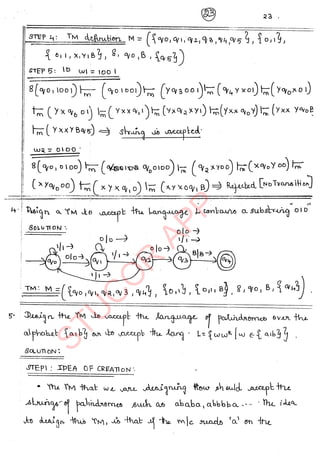 23
23.
STEP 4: TM definition M = ({q0, q1, q2, q3, q4, q5}, {0,1},
{0,1,X,Y,B}, δ, q0, B, {q5})
STEP 5: ID W1 = 1001
δ(q0, 1001) ⊢m (q01001) ⊢m (Yq3001) ⊢m (q4YX01) ⊢m (Yq0X01)
⊢m (YXq001) ⊢m (YXXq11) ⊢m (YXq2XY) ⊢m (YXXq0Y) ⊢m (YXXYq0B
⊢m (YXXYBq5) ⇒ string is accepted.
W2 = 0100
δ(q0, 0100) ⊢m (q00100) ⊢m (q2XY00) ⊢m (Xq0Y00) ⊢m
(XYq000) ⊢m (XYXq10) ⊢m (XYX0q1B) ⇒ Rejected [No Transition]
4. Design a TM to accept the language L contains a substring "010"
SOLUTION:
0|0→
1|1→
1|1→ 0|0→
0|0→ 1|1→ 0|0→ B|B→
q0 q1 q2 q3 q4
1|1→
TM: M = ({q0, q1, q2, q3, q4}, {0,1}, {0,1,B}, δ, q0, B, {q4})
5. Design the TM to accept the language of palindromes over the
alphabet {a,b} or to accept the lang. L = {
SOLUTION:
STEP 1: IDEA OF CREATION:
• The TM that we are designing now should accept the
strings of palindromes such as ababa, abbbba ... The idea
to design this TM, is that if the m/c reads 'a' on the
STUCOR APP